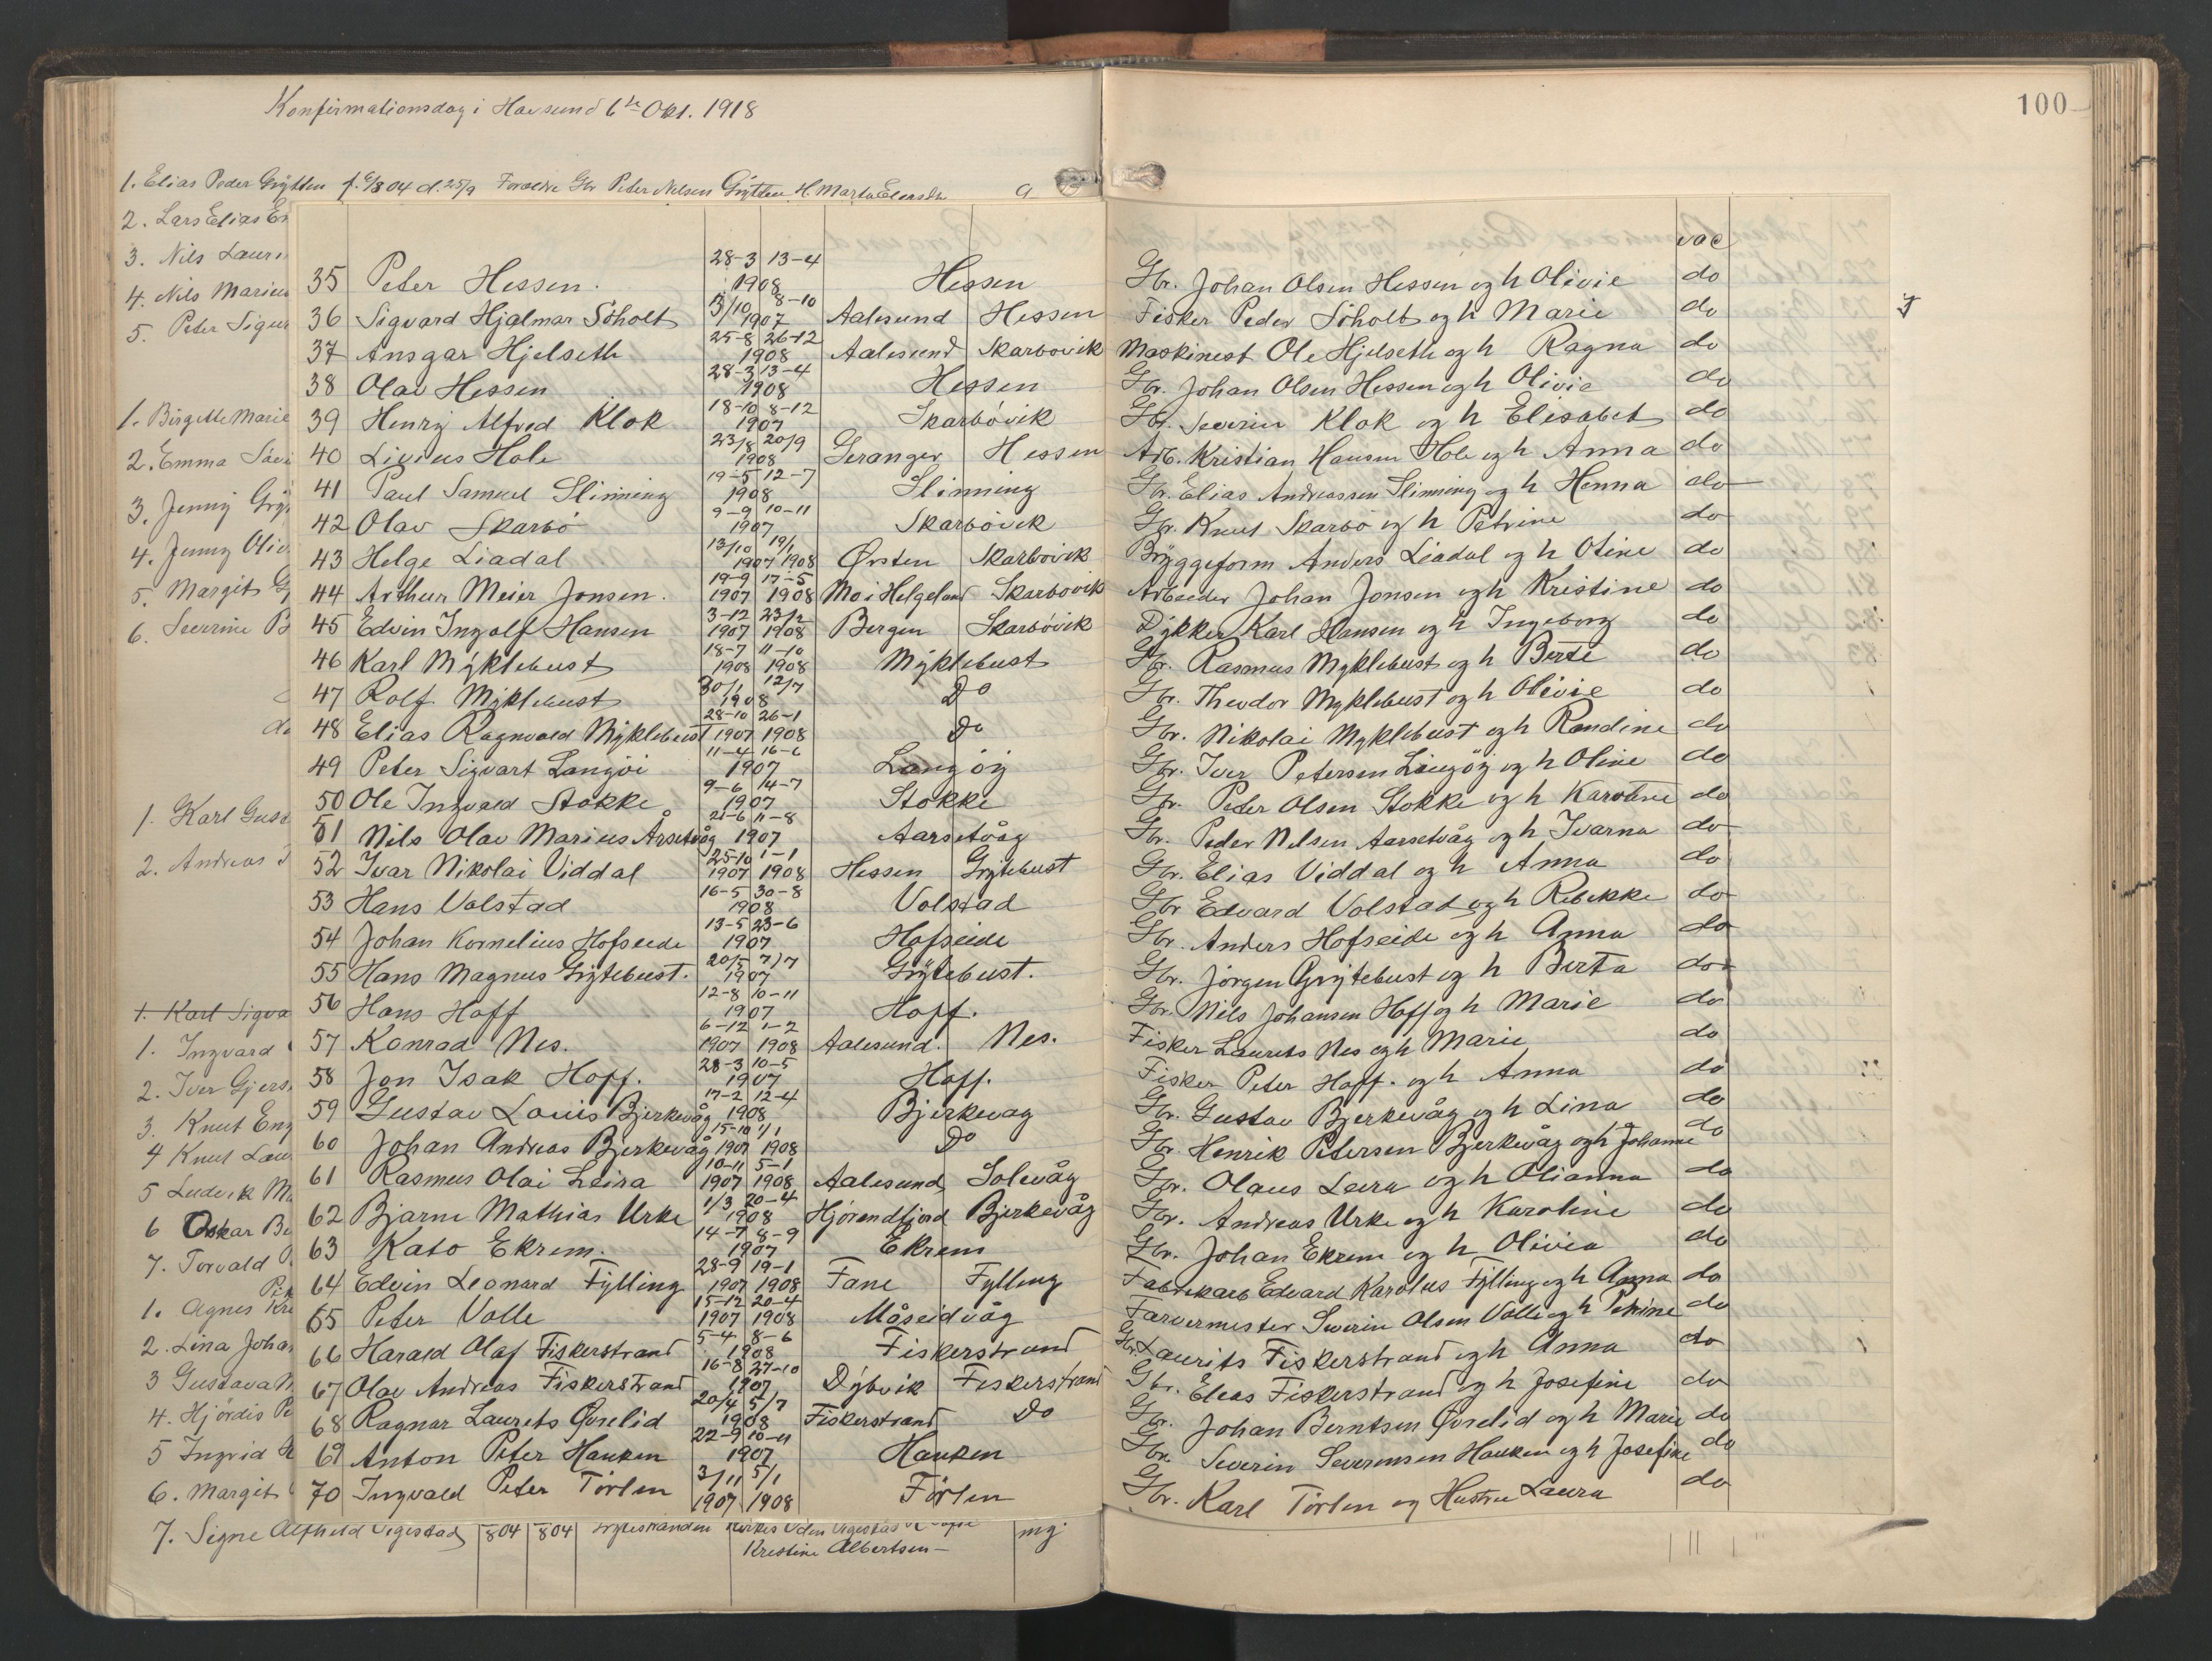 Konfirmationsdag i Havsund 6te Okt. 1918
100
1. Elias Peder Grytten f. 9/8 04 d. 25/9 Forældre Gbr Peter Nilsen Grytten H. Marta
2. Lars Elias
3. Nils
4. Nils Marius
5. Peter
1. Birgitte Marie
2. Emma
3. Jenny
4. Jenny
5. Margit
6. Severine
1. Karl
2. Andreas
1. Karl Sigva
1. Ingvard
2. Iver
3. Knut
4 Knut
5 Ludvik
6 Oskar
7. Torvald
1. Agnes
2. Lina Johan
3 Gustava
4. Hjördis
5 Ingrid
6. Margit
vac
35 Peter Hessen. 28-3 13-4 1908 Hessen Gbr. Johan Olsen Hessen og h Olivie do
36 Sigvard Hjalmar Söholt 13/10 8-10 1907 Aalesund Hessen Fisker Peder Söholt og h Marie do
37 Ansgar Hjelseth 25-8 26-12 1908 Aalesund Skarbövik Maskinest Ole Hjelseth og h Ragna do
38 Olav Hessen 28-3 13-4 1908 Hessen Gbr. Johan Olsen Hessen og h Olivia do
39 Henry Alfred Klok 18-10 8-12 1907 Skarbövik Gbr. Severin Klok og h Elisabet do
40 Livius Hole 23/8 20/9 1908 Geranger Hessen Arb. Kristian Hansen Hole og h Anna do
41 Paul Samuel Slinning 19-5 12-7 1908 Slinning Gbr. Elias Andreassen Slinning og h Henna do
42 Olav Skarbö 9-9 10-11 1907 Skarbövik Gbr. Knut Skarbö og h Petrine do
43 Helge Liadal 13/10 19/1 1907 1908 Ørsten Skarbövik Bryggeform Anders Liadal og h Oline do
44 Arthur Meier Jonsen. 19-9 17-5 1907 1908 Mo i Helgeland Skarbövik Arbeider Johan Jonsen og h Kristine do
45 Edvin Ingolf Hansen 3-12 23/2 1907 1908 Bergen Skarbövik Dykker Karl Hansen og h Ingeborg do
46 Karl Myklebust 18-7 11-10 1908 1908 Myklebust Gbr. Rasmus Myklebust og h Berte do
47 Rolf Myklebust 30/1 12/7 1908 Do Gbr. Theodor Myklebust og h Olivie do
48 Elias Ragnvald Myklebust 28-10 26-1 1907 1908 Do Gbr. Nikolai Myklebust og h Randine do
49 Peter Sigvart Langöi 11-4 16-6 1907 Langöy Gbr. Iver Petersen Langöy og h Oline do
50 Ole Ingvald Stokke 9-6 14-7 1907 Stokke Gbr. Peder Olsen Stokke og h Karoline do
51 Nils Olav Marius Årsetvåg 21-6 11-8 1907 Aarsetvåg Gbr. Peder Nilsen Aarsetvåg og h Ivarna do
52 Ivar Nikolai Viddal 25-10 1-1 1907 1908 Hessen Grytebust Gbr. Elias Viddal og h Anna do
53 Hans Volstad 16-5 30-8 1908 Volstad Gbr Edvard Volstad og h Rebekke do
54 Johan Kornelius Hofseide 13-5 23-6 1907 Hofseide Gbr. Anders Hofseide og h Anna do
55 Hans Magnus Grytebust. 20/5 7/7 1907 Grytebust. Gbr. Jörgen Grytebust og h Berta do
56 Hans Hoff 12-8 10-11 1907 Hoff. Gbr. Nils Johansen Hoff og h Marie do
57 Konrad Nes. 6-12 1-2 1907 1908 Aalesund. Nes. Fisker Laurits Nes og h Marie do
58 Jon Isak Hoff. 28-3 10-5 1907 Hoff. Fisker Peter Hoff. og h Anna do
59 Gustav Louis Bjerkevåg 17-2 12-4 1908 Bjerkevag Gbr. Gustav Bjerkevåg og h Lina do
60 Johan Andreas Bjerkevåg 15-10 1/1 1907 1908 Do Gbr. Henrik Petersen Bjerkevåg og h Johanne do
61 Rasmus Olai Leira 10-11 5-1 1907 1908 Aalesund Solevåg Gbr. Olaus Leira og h Olianna do
62 Bjarne Mathias Urke 1/3 20-4 1908 Hjörendfjord Bjerkevåg Gbr. Andreas Urke og h Karoline do
63 Kato Ekrem. 14-7 8-9 1907 Ekrem Gbr. Johan Ekrem og h Olivia do
64 Edvin Leonard Fylling 28-9 19-1 1907 1908 Fane Fylling Fabrikarb Edvard Karolus Fylling og h Anna do
65 Peter Valle 15-12 20-4 1907 1908 Måseidvåg Farvermester Severin Olsen Valle og h Petrine do
66 Harald Olaf Fiskerstrand 5-4 8-6 1908 Fiskerstrand Gbr. Laurits Fiskerstrand og h Anna do
67 Olav Andreas Fiskerstrand 16-8 27-10 1907 Dybvik Fiskerstrand Gbr. Elias Fiskerstrand og h Josefine do
68 Ragnar Laurits Øvrelid 20/4 5/7 1908 Fiskerstrand Do Gbr. Johan Berntsen Øvrelid og h Marie do
69 Anton Peter Hauken 22-9 10-11 1907 Hauken Gbr. Severin Severinsen Hauken og h Josefine do
70 Ingvald Peter Törlen 3/11 5/1 1907 1908 Törlen Gbr. Karl Törlen og Hustru Laura do
7. Signe Alfhild Vigestad 804 804
Kristine Albertsen mg